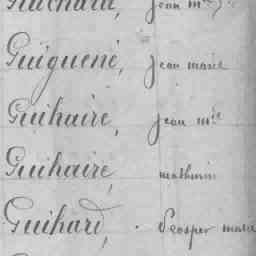 Guichard, jean m
Guiguené, jean marie
Guihaire, jean mie
Guihaire, mathurin
Guihard, Prosper marie